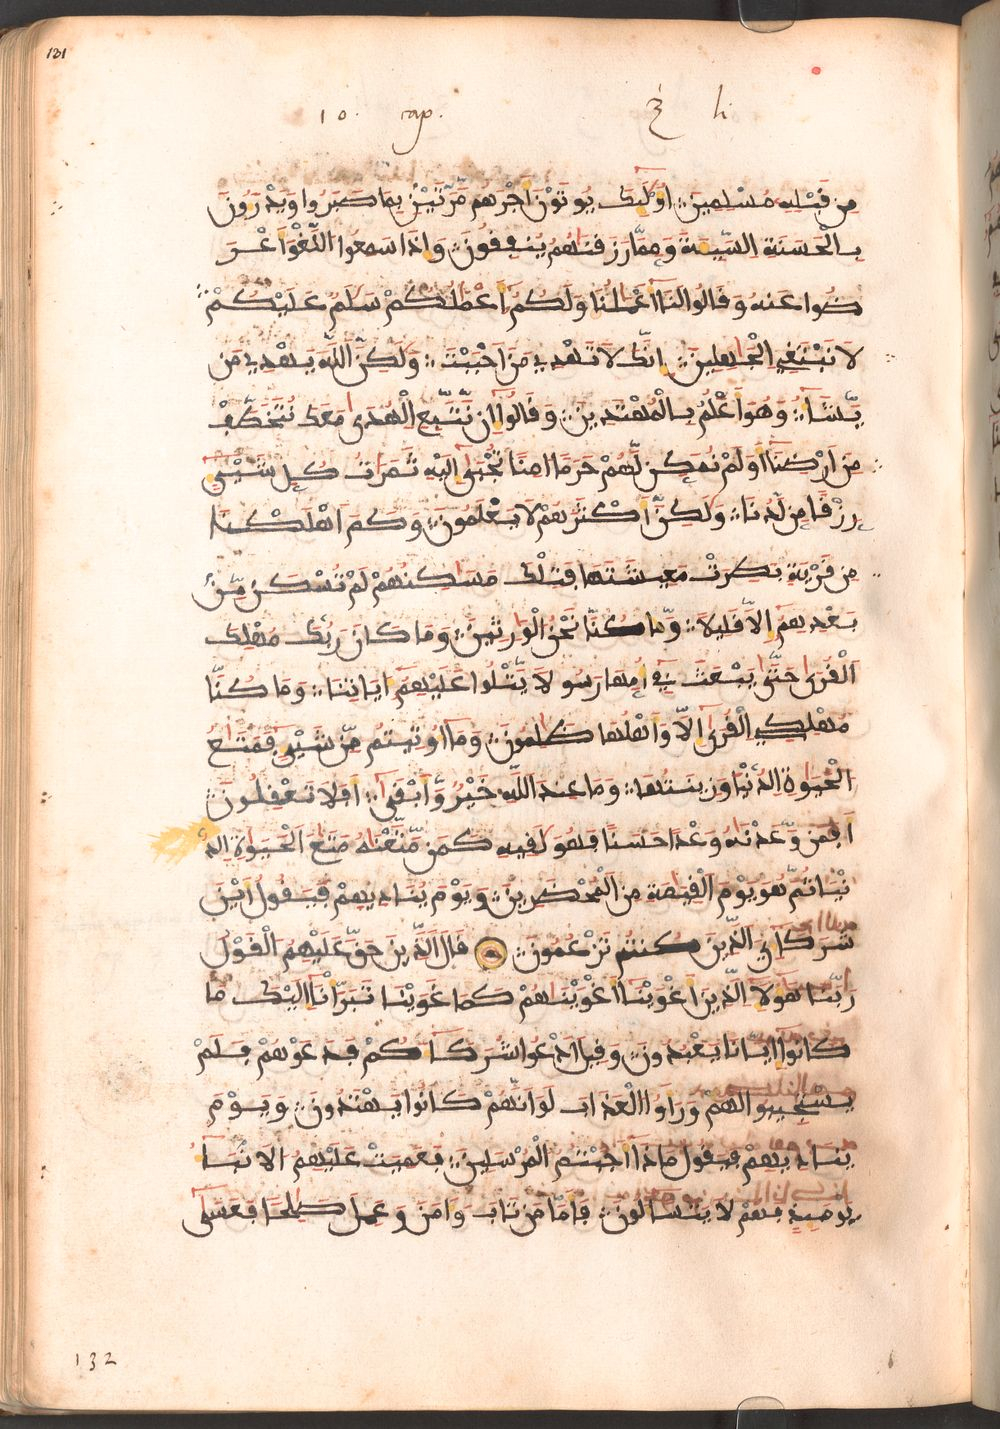 131
10. cap. 3 li
مِن قَبْلِهِ مُسْلِمِينَ أُوْلَٰٓئِكَ يُوتَوْنَ أَجْرَهُم مَّرَّتَيْنِ بِمَا صَبَرُوا وَيَدْرَءُونَ
بِالْحَسَنَةِ السَّيِّئَةَ وَمِمَّا رَزَقْنَٰهُمْ يُنفِقُونَ وَإِذَا سَمِعُوا اللَّغْوَ أَعْرَ
ضُوا عَنْهُ وَقَالُوا لَنَا أَعْمَٰلُنَا وَلَكُمْ أَعْمَٰلُكُمْ سَلَٰمٌ عَلَيْكُمْ
لَا نَبْتَغِي الْجَٰهِلِينَ إِنَّكَ لَا تَهْدِي مَنْ أَحْبَبْتَ وَلَٰكِنَّ اللَّهَ يَهْدِي مَن
يَّشَآءُ وَهُوَ أَعْلَمُ بِالْمُهْتَدِينَ وَقَالُوا إِن نَّتَّبِعِ الْهُدَىٰ مَعَكَ نُتَخَطَّفْ
مِنْ أَرْضِنَا أَوَلَمْ نُمَكِّن لَّهُمْ حَرَمًا امِنًا تُجْبَىٰ إِلَيْهِ ثَمَرَٰتُ كُلِّ شَيْءٍ
رِّزْقًا مِّن لَّدُنَّا وَلَٰكِنَّ أَكْثَرَهُمْ لَا يَعْلَمُونَ وَكَمَ اهْلَكْنَا
مِن قَرْيَةٍ بَطِرَتْ مَعِيشَتَهَا فَتِلْكَ مَسَٰكِنُهُمْ لَمْ تُسْكَن مِّنۢ
بَعْدِهِمْ إِلَّا قَلِيلًا وَّمَا كُنَّا نَحْنُ الْوَٰرِثِينَ وَمَا كَانَ رَبُّكَ مُهْلِكَ
الْقُرَىٰ حَتَّىٰ يَبْعَثَ فِي أُمِّهَا رَسُولًا يَّتْلُوا عَلَيْهِمْ ايَاتِنَا وَمَا كُنَّا
مُهْلِكِي الْقُرَىٰ إِلَّا وَأَهْلُهَا ظَٰلِمُونَ وَمَا أُوتِيتُم مِّن شَيْءٍ فَمَتَٰعُ
الْحَيَوٰةِ الدُّنْيَا وَزِينَتُهَا وَمَا عِندَ اللَّهِ خَيْرٌ وَّأَبْقَىٰ أَفَلَا تَعْقِلُونَ
أَفَمَن وَّعَدْنَٰهُ وَعْدًا حَسَنًا فَهُوَ لَٰقِيهِ كَمَن مَّتَّعْنَٰهُ مَتَٰعَ الْحَيَوٰةِ الد
نْيَا ثُمَّ هُوَ يَوْمَ الْقِيَٰمَةِ مِنَ الْمُحْضَرِينَ وَيَوْمَ يُنَادِيهِمْ فَيَقُولُ أَيْنَ
شُرَكَآءِيَ الَّذِينَ كُنتُمْ تَزْعُمُونَ قَالَ الَّذِينَ حَقَّ عَلَيْهِمُ الْقَوْلُ
رَبَّنَا هَٰؤُلَآءِ الَّذِينَ أَغْوَيْنَا أَغْوَيْنَٰهُمْ كَمَا غَوَيْنَا تَبَرَّأْنَا إِلَيْكَ مَا
كَانُوا إِيَّانَا يَعْبُدُونَ وَقِيلَ ادْعُوا شُرَكَآءَكُمْ فَدَعَوْهُمْ فَلَمْ
يَسْتَجِيبُوا لَهُمْ وَرَأَوُا الْعَذَابَ لَوْ أَنَّهُمْ كَانُوا يَهْتَدُونَ وَيَوْمَ
يُنَادِيهِمْ فَيَقُولُ مَاذَا أَجَبْتُمُ الْمُرْسَلِينَ فَعَمِيَتْ عَلَيْهِمُ الْأَنۢبَآءُ
يَوْمَئِذٍ فَهُمْ لَا يَتَسَآءَلُونَ فَأَمَّا مَن تَابَ وَءَامَنَ وَعَمِلَ صَٰلِحًا فَعَسَىٰ
132